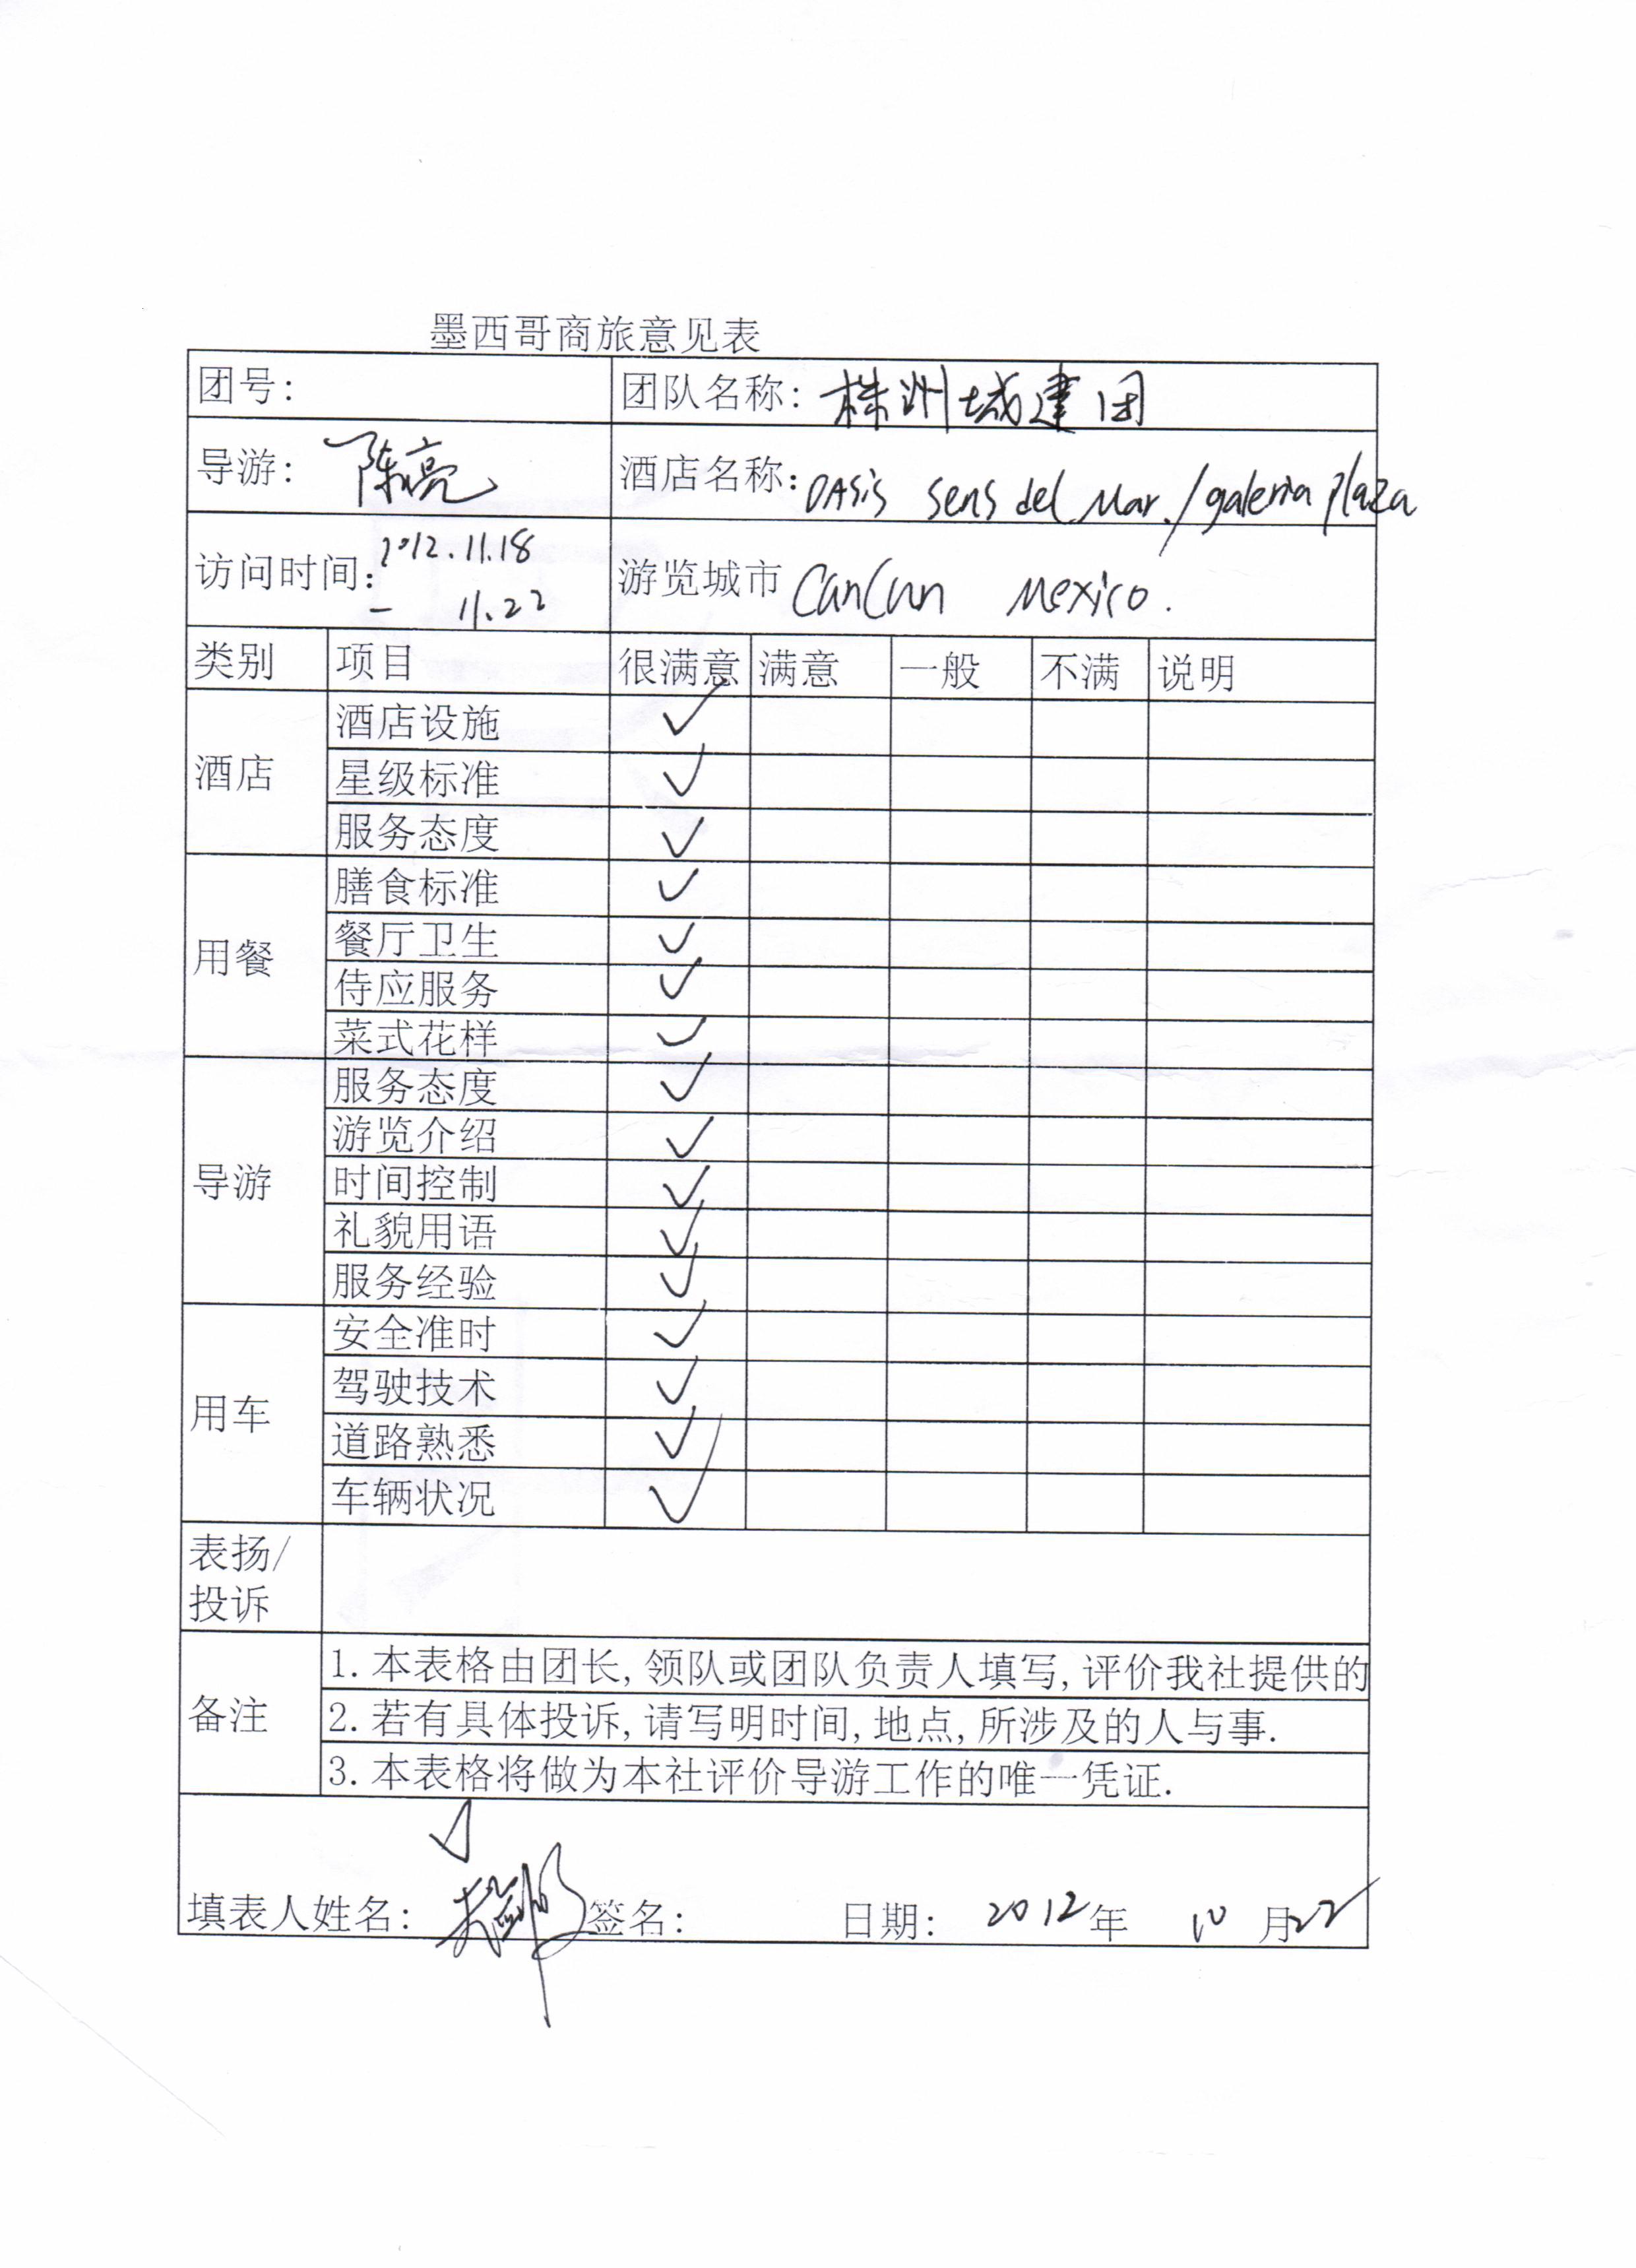 墨西哥商旅意见表
团号: 团队名称: 株洲城建团
导游: 陈亮 酒店名称: OASis sens del Mar./galeria plaza
访问时间: 2012.11.18 — 11.22 游览城市 CanCun Mexico.
类别 项目 很满意 满意 一般 不满 说明
酒店 酒店设施 ✓
星级标准 ✓
服务态度 ✓
用餐 膳食标准 ✓
餐厅卫生 ✓
侍应服务 ✓
菜式花样 ✓
导游 服务态度 ✓
游览介绍 ✓
时间控制 ✓
礼貌用语 ✓
服务经验 ✓
用车 安全准时 ✓
驾驶技术 ✓
道路熟悉 ✓
车辆状况 ✓
表扬/
投诉
备注 1. 本表格由团长, 领队或团队负责人填写, 评价我社提供的
2. 若有具体投诉, 请写明时间, 地点, 所涉及的人与事.
3. 本表格将做为本社评价导游工作的唯一凭证.
填表人姓名: 签名: 日期: 2012年 10月22